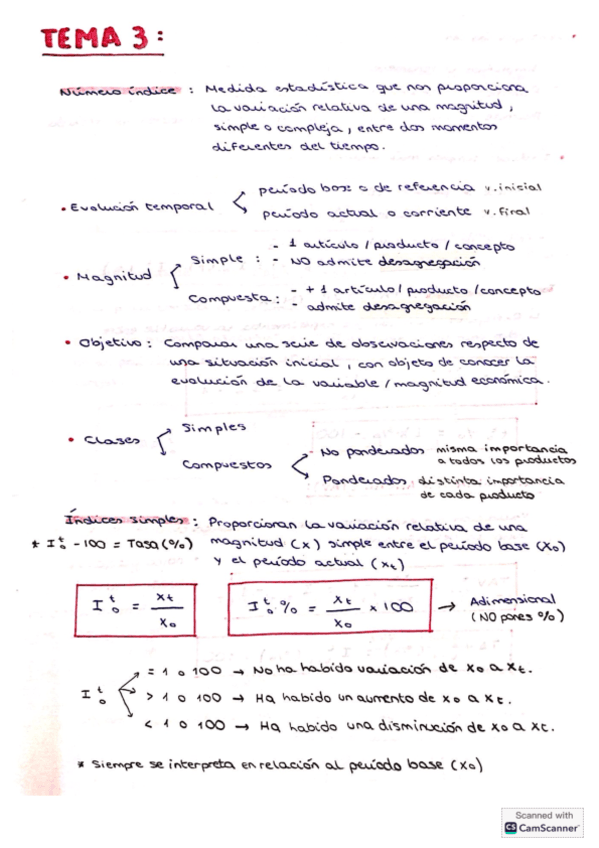 TEMA 3:
Número índice : Medida estadística que nos proporciona
la variación relativa de una magnitud,
simple o compleja, entre dos momentos
diferentes del tiempo.
• Evolución temporal
período base o de referencia v. inicial
período actual o corriente v. final
• Magnitud
Simple : - 1 artículo / producto / concepto
- NO admite desagregación
Compuesta : - + 1 artículo / producto / concepto
- admite desagregación
• Objetivo : Comparar una serie de observaciones respecto de
una situación inicial, con objeto de conocer la
evolución de la variable / magnitud económica.
• Clases
Simples
Compuestos
No ponderados misma importancia
a todos los productos
Ponderados distinta importancia
de cada producto
Índices simples : Proporcionan la variación relativa de una
* I₀ᵗ - 100 = Tasa (%) magnitud (x) simple entre el período base (X₀)
y el período actual (xₜ)
I₀ᵗ = xₜ / x₀
I₀ᵗ % = xₜ / x₀ × 100 → Adimensional
(NO pones %)
I₀ᵗ
= 1 o 100 → No ha habido variación de x₀ a xₜ.
> 1 o 100 → Ha habido un aumento de x₀ a xₜ.
< 1 o 100 → Ha habido una disminución de x₀ a xₜ.
* Siempre se interpreta en relación al período base (X₀)
Scanned with
CS CamScanner